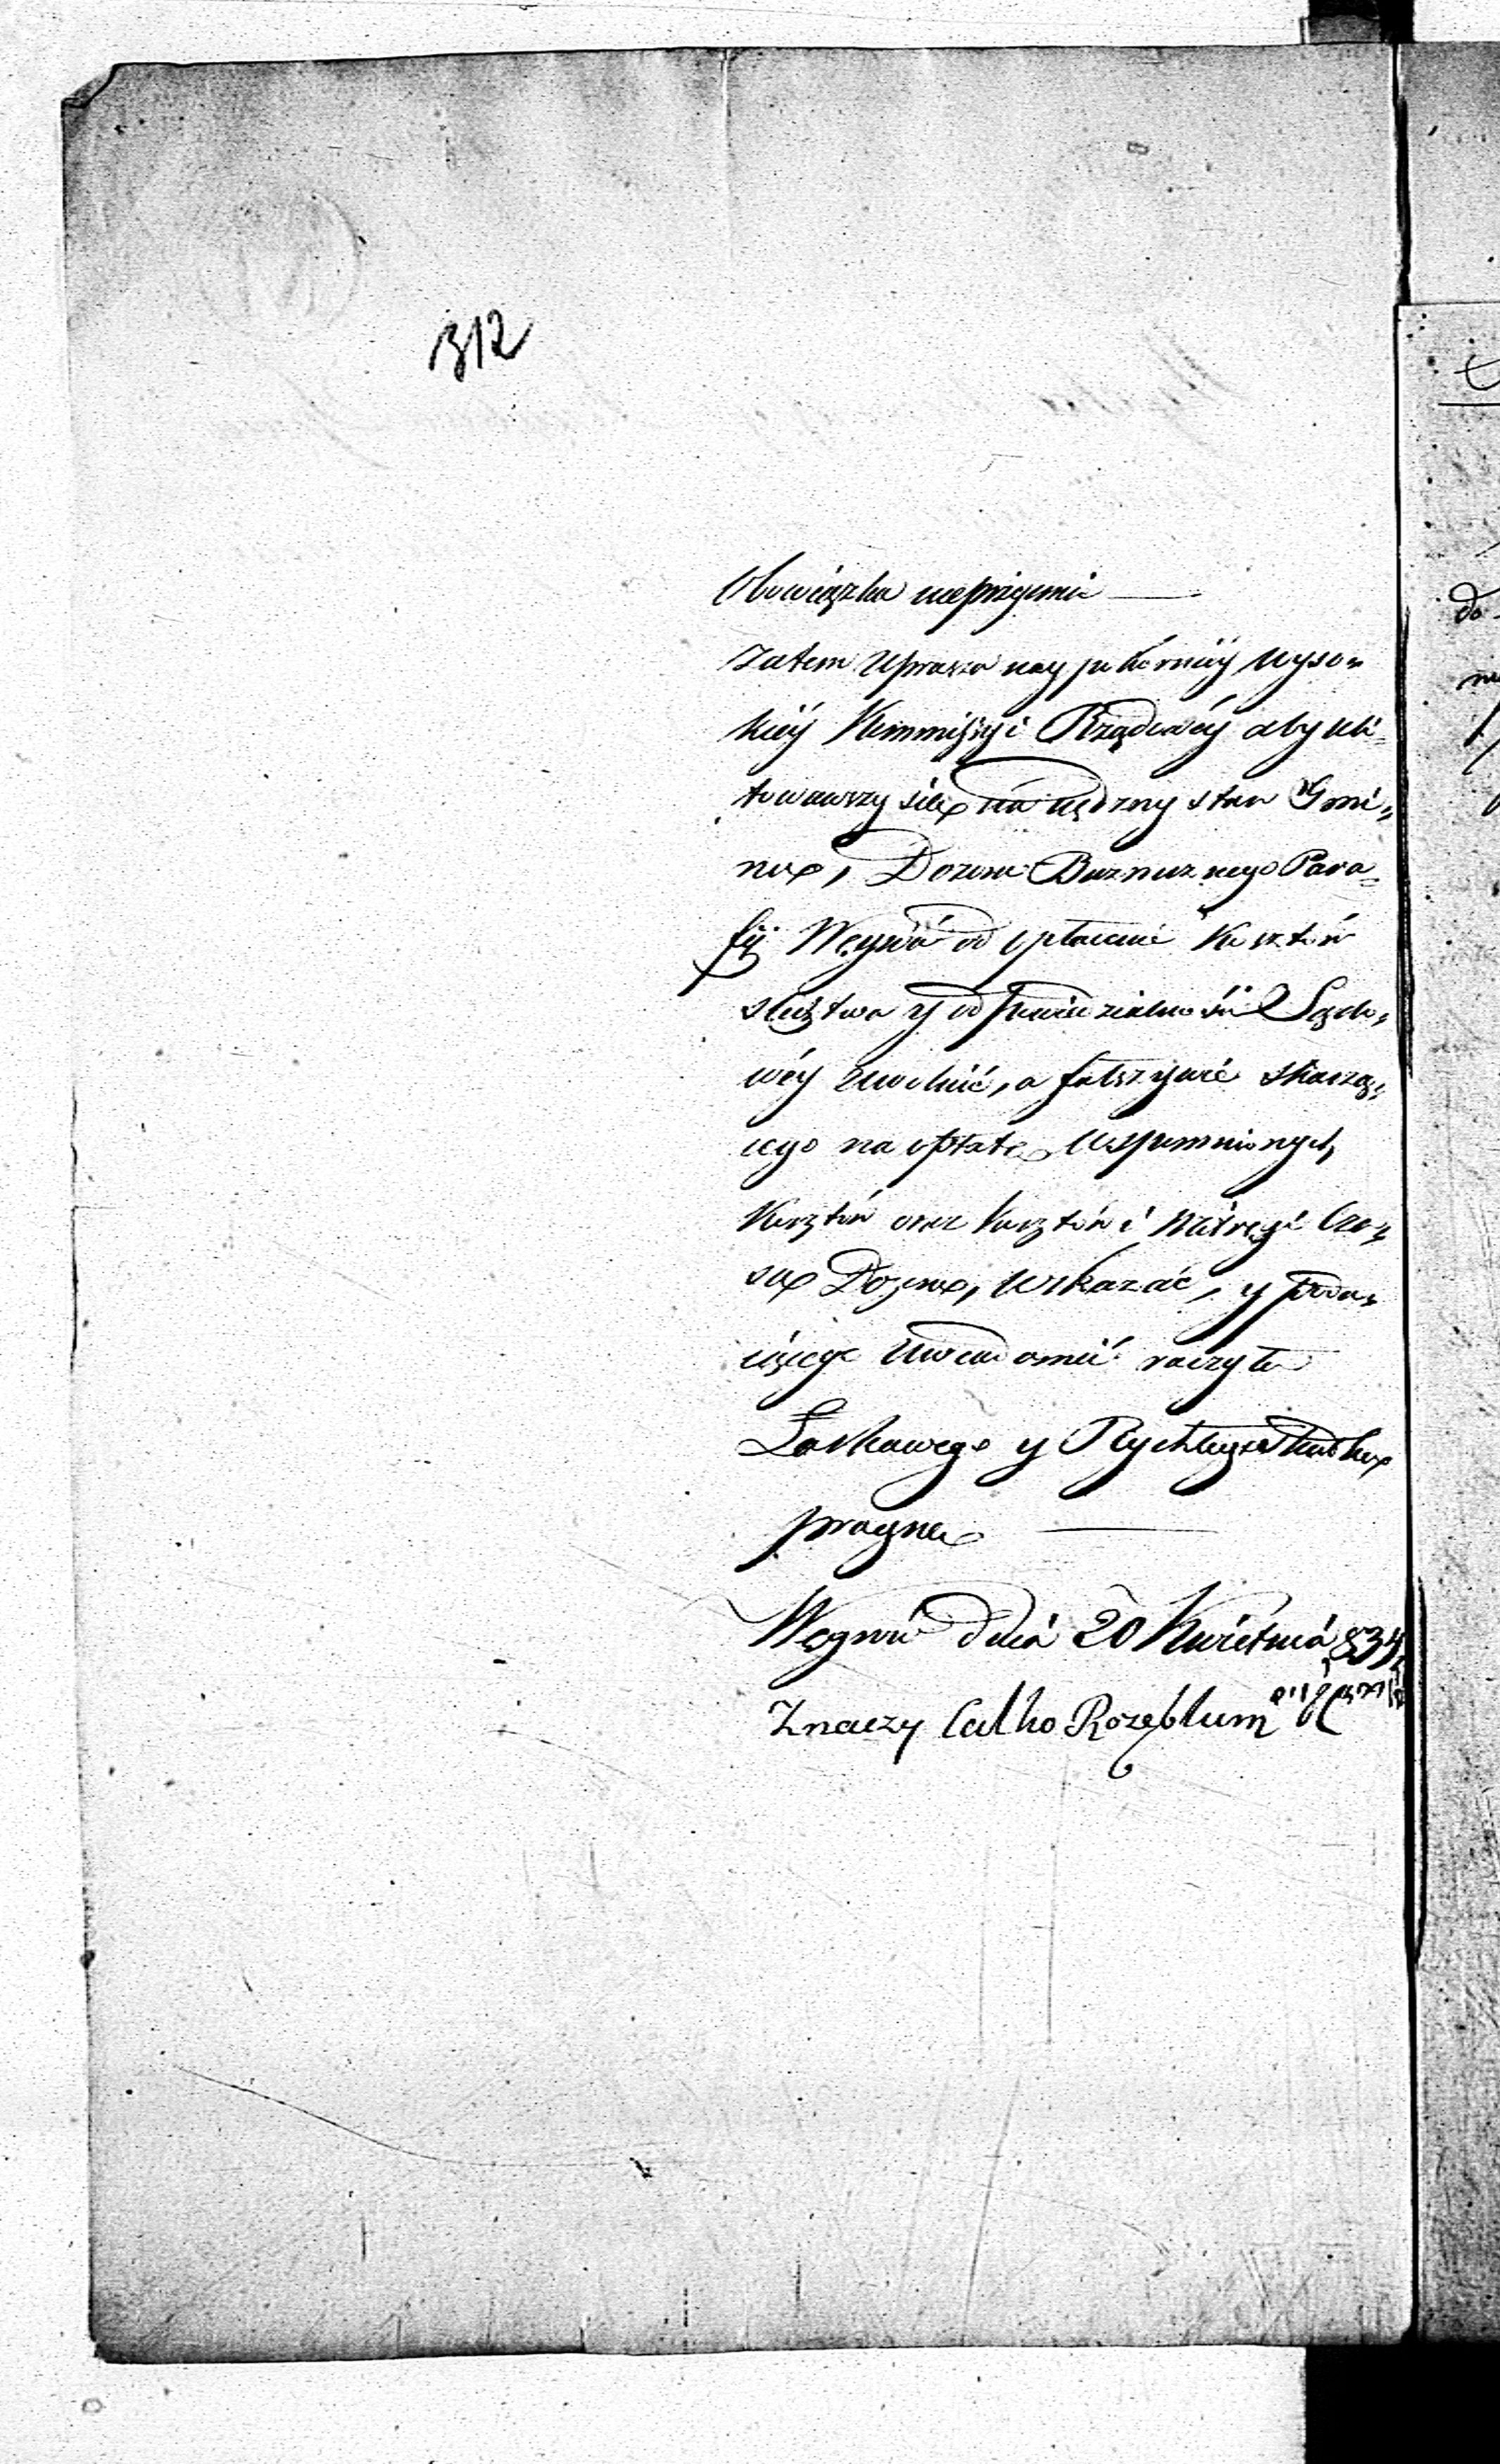 312
Obowiązku nieprzyjmie —
Zatem Uprasza naypokorniéy Wyso„
kiéy Kommissyi Rządowéy aby uli„
towawszy siĕ na nędzny stan Gmi„
nĕ, Dozoru Buzniczego Para„
fij Węgrów od opłacenia Kosztów
sledztwa y od powiedzialności Sądo„
wéy uwolnić, a fałszywie skarżą„
cego na opłatĕ wspomnionych
Kosztów oraz kosztów i mitręgi Cza„
su Dozoru, wskazać, y poda„
iącego uwiadomić raczyła
Łaskawego y Rychłego skutku
pragnĕ —
Węgrów dnia 20 Kwietnia 834
Znaczy Calko Rozęblum
do